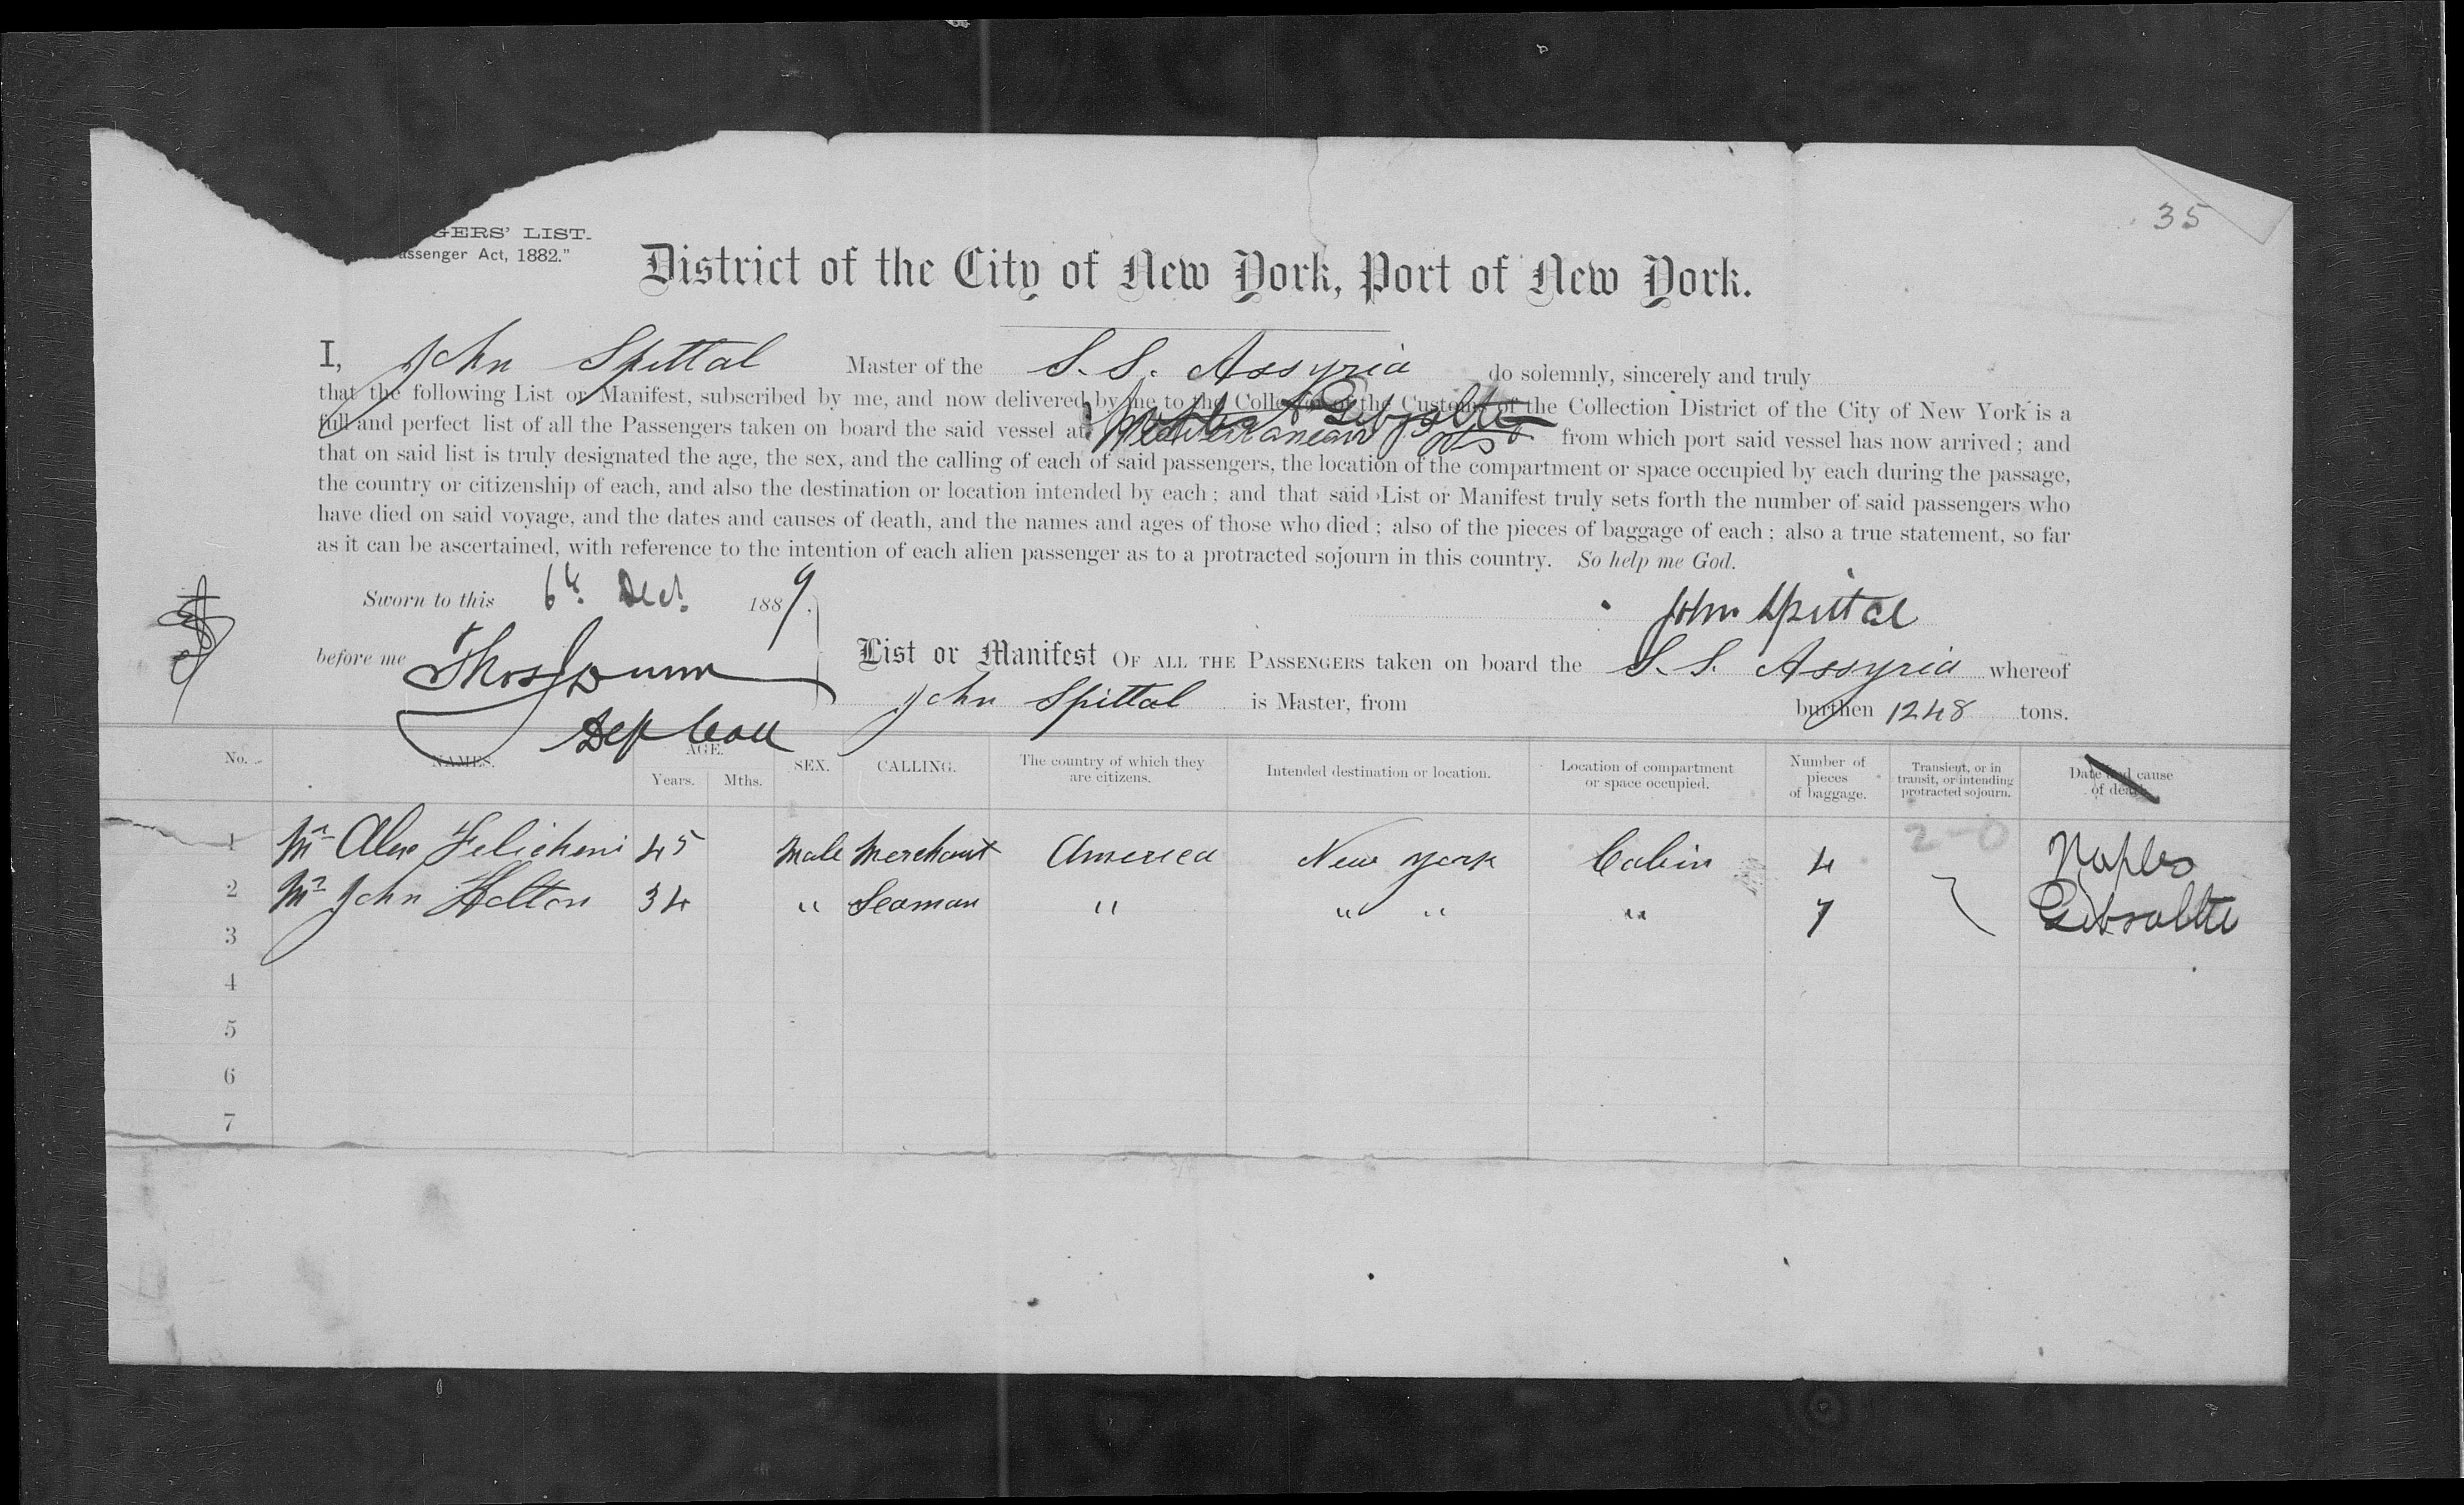 35
GERS' LIST.
assenger Act, 1882."
District of the City of New York, Port of New York.
I, John Spittal Master of the S.S. Assyria do solemnly, sincerely and truly
that the following List or Manifest, subscribed by me, and now delivered by me to the Collector of the Customs of the Collection District of the City of New York is a
full and perfect list of all the Passengers taken on board the said vessel at Naples & Gibraltar Mediterranean pts from which port said vessel has now arrived; and
that on said list is truly designated the age, the sex, and the calling of each of said passengers, the location of the compartment or space occupied by each during the passage,
the country or citizenship of each, and also the destination or location intended by each; and that said List or Manifest truly sets forth the number of said passengers who
have died on said voyage, and the dates and causes of death, and the names and ages of those who died; also of the pieces of baggage of each; also a true statement, so far
as it can be ascertained, with reference to the intention of each alien passenger as to a protracted sojourn in this country. So help me God.
Sworn to this 6th Dec. 1889.
John Spittal
before me Thos Dunn
Dep Coll
List or Manifest OF ALL THE PASSENGERS taken on board the S.S. Assyria whereof
John Spittal is Master, from burthen 1248 tons.
No. NAMES. AGE. Years. Mths. SEX. CALLING. The country of which they are citizens. Intended destination or location. Location of compartment or space occupied. Number of pieces of baggage. Transient, or in transit, or intending protracted sojourn. Date and cause of death.
2-0
1 Mr Alex Felicheni 45 Male Merchant America New York Cabin 4 Naples
2 Mr John Holton 34 " Seaman " " " " 7 Gibraltr
3
4
5
6
7